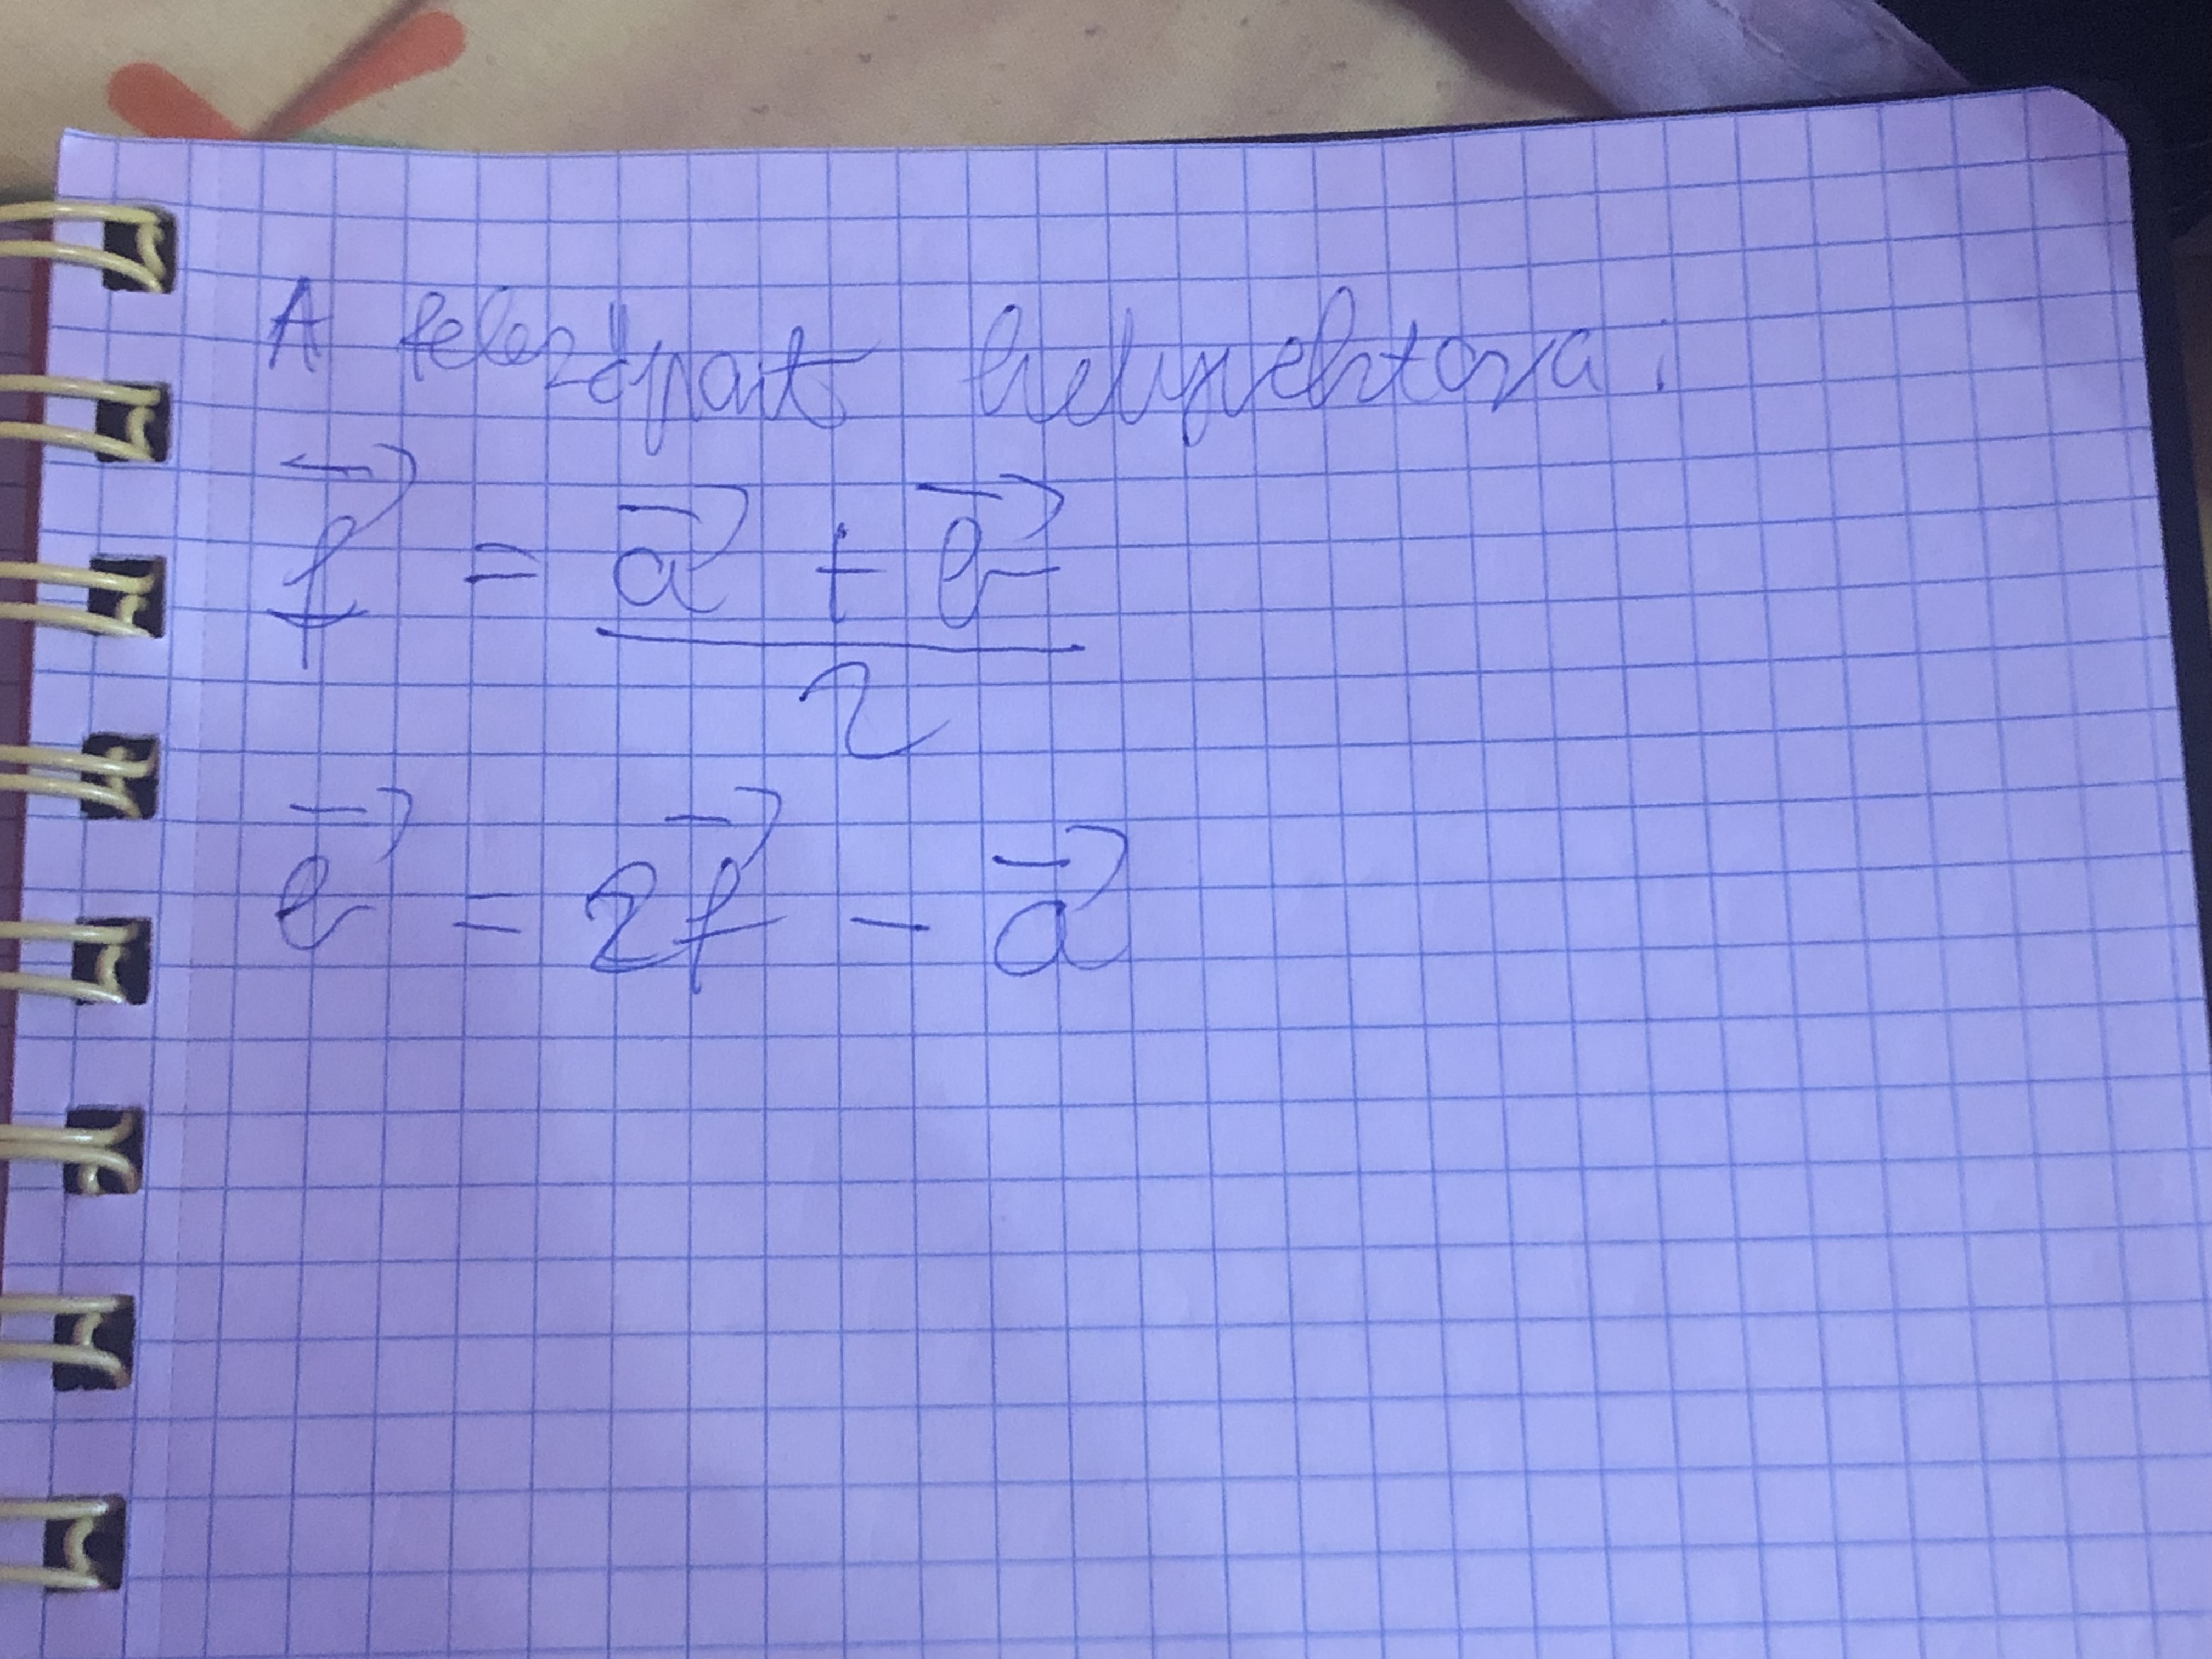 A felezőpont helyvektora:
f⃗ = (a⃗ + b⃗) / 2
b⃗ = 2f⃗ - a⃗